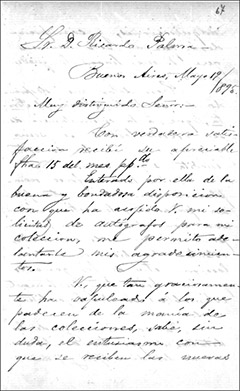 67
Sr. D. Ricardo Palma
Buenos Aires, Mayo 19/896
Muy distinguido Señor:
Con verdadera satis
faccion recibí su apreciable
15 del mes ppdo
Enterado por ella de la
buena y bondadosa disposicion
con que ha acojido V. mi so-
licitud de autógrafos para mi
coleccion, me permito ade
lantarle mis agradecimien
tos.
V. que tan graciosamen
te ha á los que
padecen de la manía de
las colecciones, sabe, sin
duda, el entusiasmo con
que se reciben las nuevas